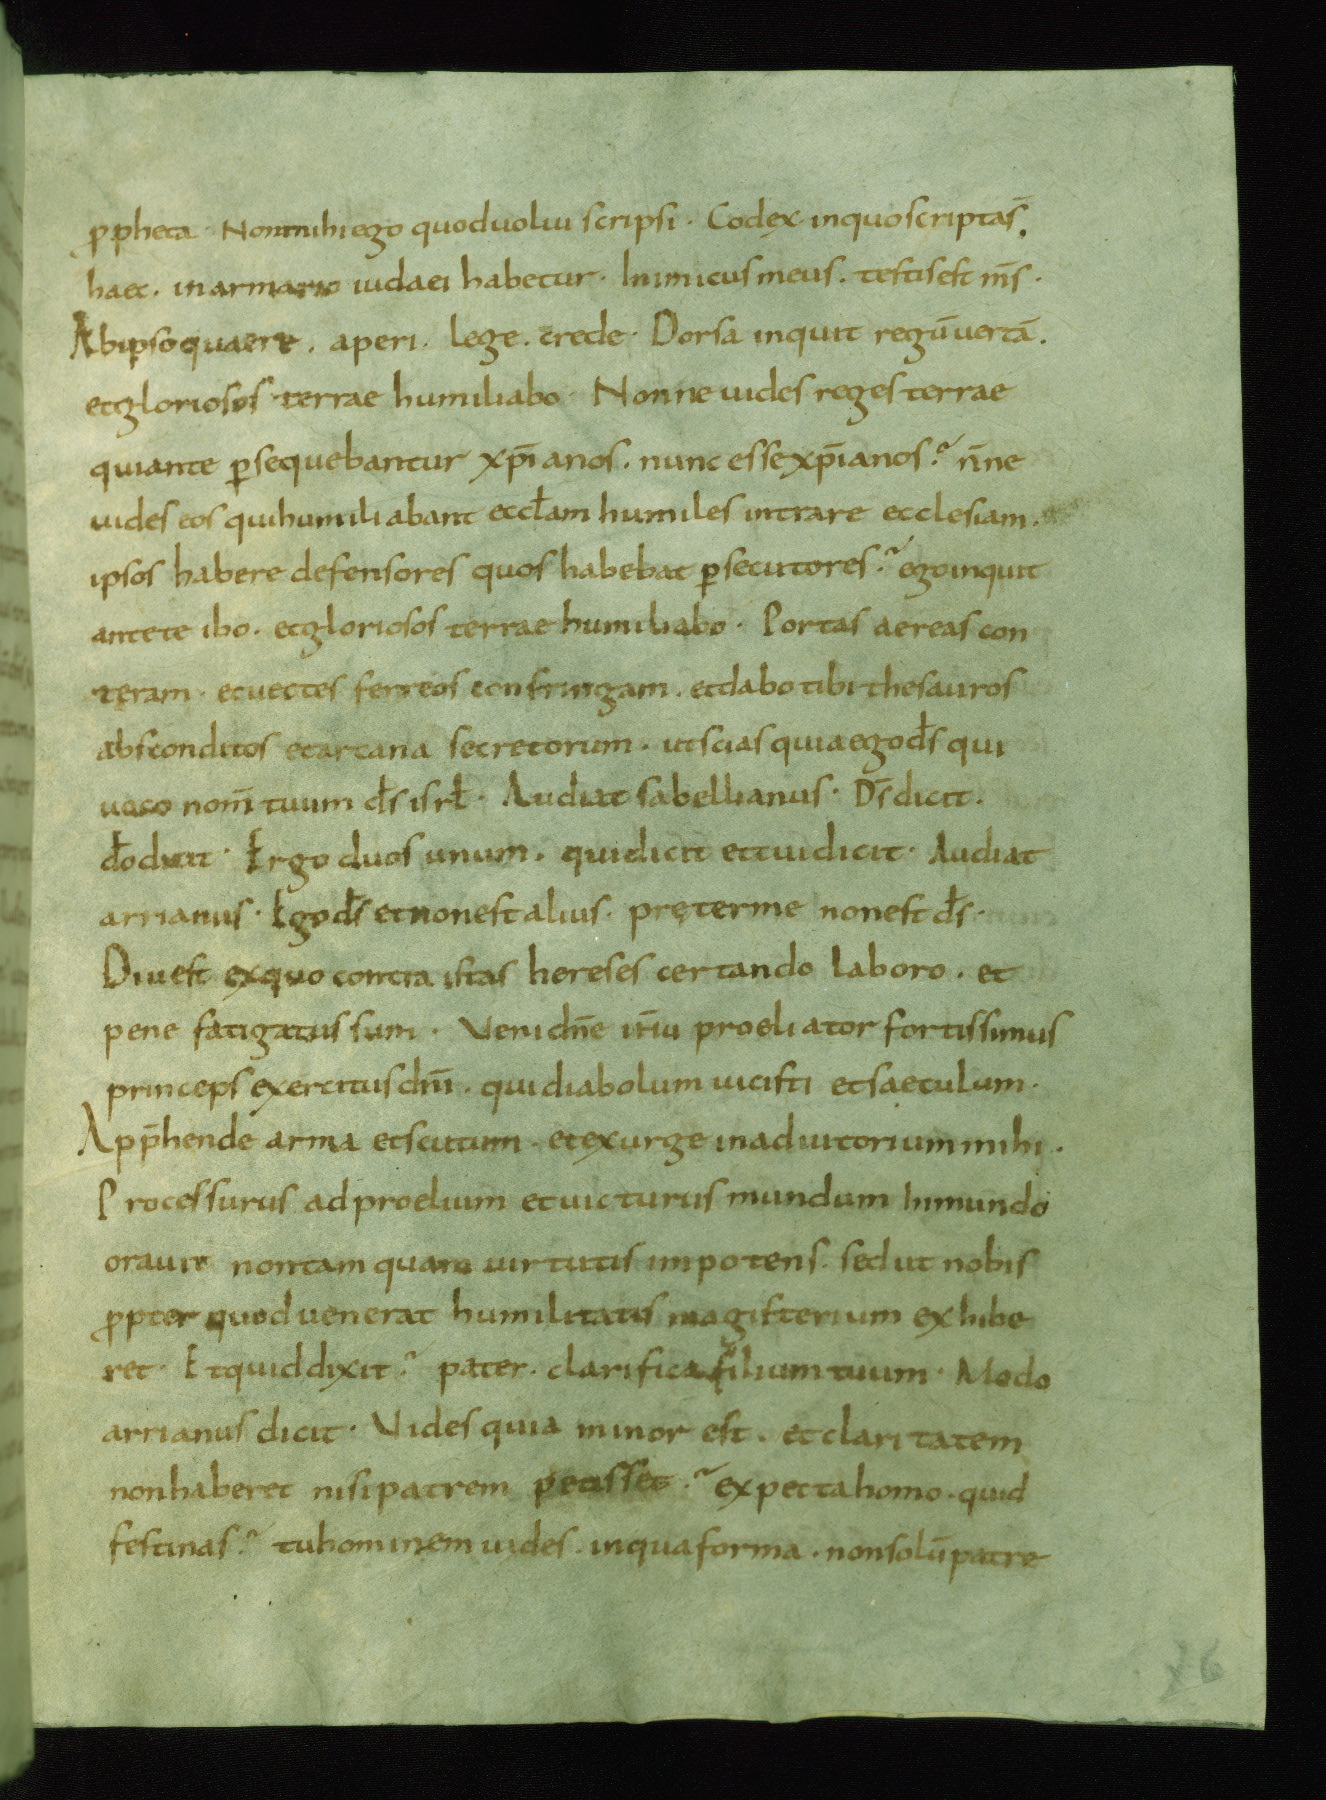 ꝓpheta · Non mihi ego quod volui scripsi · Codex in quo scripta s̄.
haec . in armario iudaei habetur · Inimicus meus . testis est m̄s ·
Ab ipso quaere . aperi . lege . crede · Dorsa inquit regū vertā .
et gloriosos terrae humiliabo · Nonne uides reges terrae
qui ante ꝑsequebantur xp̄ianos . nunc esse xp̄ianos .~ n̄ne
uides eos qui humiliabant eccƚam humiles intrare ecclesiam .
ipsos habere defensores quos habebat ꝑsecutores .~ ego inquit
ante te ibo . et gloriosos terrae humiliabo · Portas aereas con
teram · et vectes ferreos confringam . et dabo tibi thesauros
absconditos et arcana secretorum . ut scias quia ego d̄s qui
uoco nom̄ tuum d̄s isrƚ · Audiat sabellianus · Ds̄ dicit .
d̄o dicit · Ergo duos unum . qui dicit et cui dicit · Audiat
arrianus · Ego d̄s et non est alius . pręter me non est d̄s ·
Diu est ex quo contra istas hereses certando laboro . et
pene fatigatus sum · Veni dn̄e ih̄u proeliator fortissimus
princeps exercitus dn̄i . qui diabolum uicisti et saeculum ·
App̄hende arma et scutum · et exurge in adiutorium mihi .
Processurus ad proelium et uicturus mundum In mundo
orauit non tam quam uirtutis impotens . sed ut nobis
ꝓpter quod uenerat humilitatis magisterium exhibe
ret · Et quid dixit .~ pater . clarifica filium tuum · Modo
arrianus dicit · Vides quia minor est . et claritatem
non haberet nisi patrem petisset .~ expecta homo . quid
festinas .~ tu hominem uides . in qua forma . non solū patre